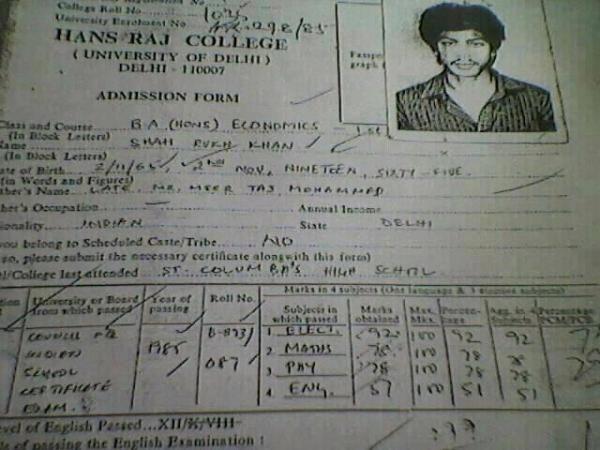 College Roll No.
University Enrolment No. 298/85
HANS RAJ COLLEGE
( UNIVERSITY OF DELHI )
DELHI - 110007
ADMISSION FORM
Class and Course B.A (HONS) ECONOMICS - I st
(In Block Letters)
Name SHAH RUKH KHAN
(In Block Letters)
ate of Birth 2/11/65, 2nd NOV, NINETEEN, SIXTY-FIVE.
(in Words and Figures)
ther's Name LATE MR. MEER TAJ MOHAMMED
her's Occupation Annual Income
ionality INDIAN State DELHI
you belong to Scheduled Caste/Tribe NO
so, please submit the necessary certificate alongwith this form)
ol/College last attended ST. COLUMBA'S HIGH SCHOOL
Marks in 4 subjects (One language & 3 elective subjects)
University or Board from which passed Year of passing Roll No. Subjects in which passed Marks obtained Max. Percentage Agg. in 4 Subjects Percentage
COUNCIL INDIAN SCHOOL CERTIFICATE EXAM. 1985 087
1 ELECT. 92 100 92 92
2 MATHS 78 100 78 78
3 PHY 78 100 78 78
4 ENG. 51 100 51 51
evel of English Passed...XII/X/VIII
of passing the English Examination :